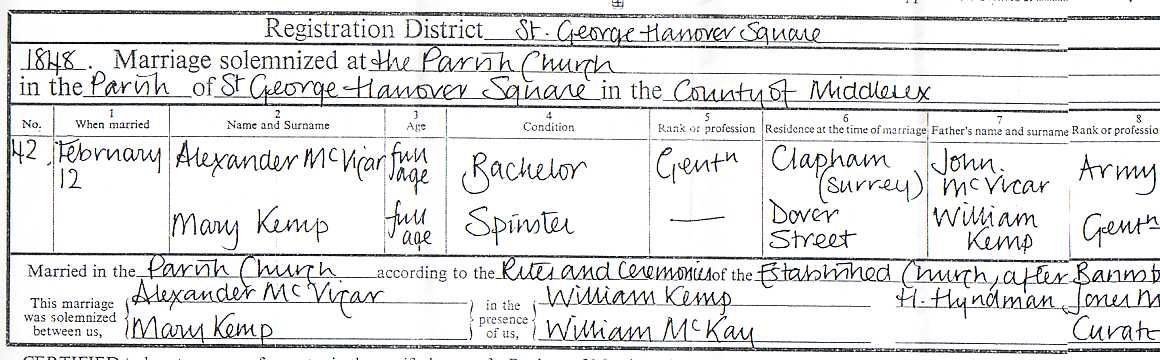 Registration District St. George Hanover Square
1848. Marriage solemnized at the Parish Church
in the Parish of St George Hanover Square in the County of Middlesex
1 2 3 4 5 6 7 8
No. When married Name and Surname Age Condition Rank or profession Residence at the time of marriage Father's name and surname Rank or professio
42. February 12 Alexander McVicar full age Bachelor Gentn Clapham (Surrey) John McVicar Army
Mary Kemp full age Spinster — Dover Street William Kemp Gentn
Married in the Parish Church according to the Rites and Ceremonies of the Established Church, after Banns b
This marriage was solemnized between us, Alexander McVicar in the presence of us, William Kemp H. Hyndman Jones M
Mary Kemp William McKay Curate